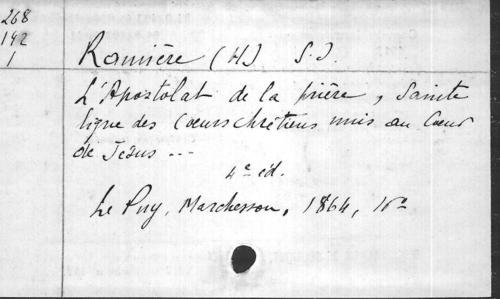 268
142
1
Ramière (H) S.J.
L'Apostolat de la prière, Sainte
ligue des Coeurs chrétiens unis au Coeur
de Jésus ...
4e éd.
Le Puy, Marchesson, 1864, 16o